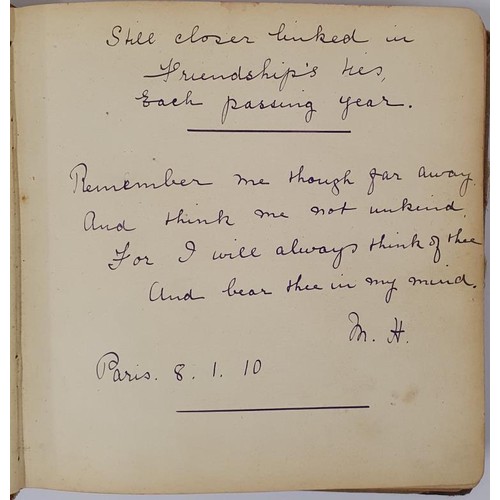 Still closer linked in
Friendship's ties,
Each passing year.
Remember me though far away
And think me not unkind,
For I will always think of thee
And bear thee in my mind.
M. H.
Paris. 8. 1. 10